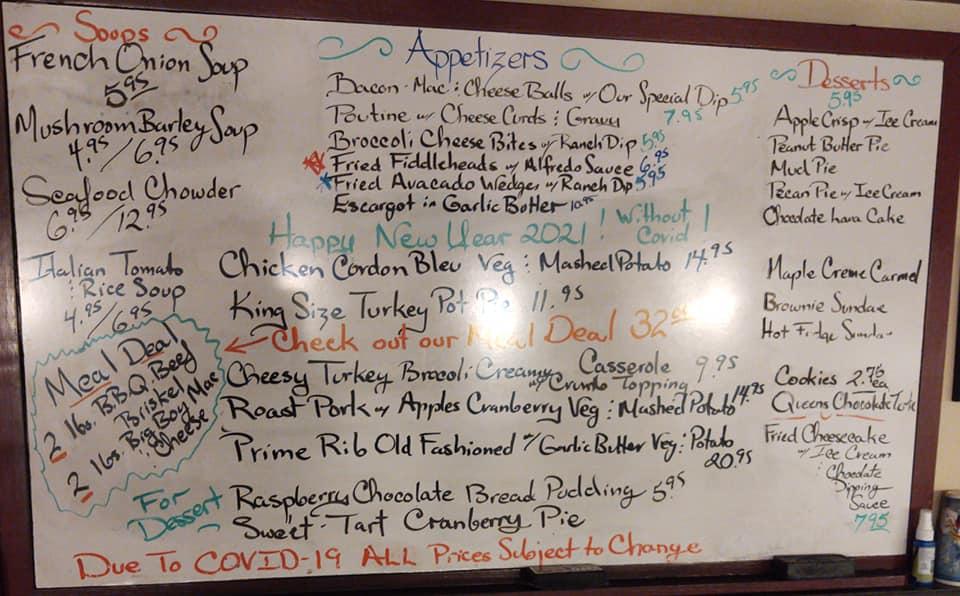 Soups
French Onion Soup
5.95
Mushroom Barley Soup
4.95/6.95
Seafood Chowder
6.95/12.95
Italian Tomato
: Rice Soup
4.95/6.95
Meal Deal
2 lbs. B.B.Q. Beef
Brisket
2 lbs. Big Boy Mac
: Cheese
Appetizers
Bacon - Mac : Cheese Balls w/ Our Special Dip 5.95
Poutine w/ Cheese Curds : Gravy 7.95
Broccoli Cheese Bites w/ Ranch Dip 5.95
Fried Fiddleheads w/ Alfredo Sauce 6.95
Fried Avacado Wedges w/ Ranch Dip 5.95
Escargot in Garlic Butter 10.95
Happy New Year 2021! Without
Covid!
Chicken Cordon Bleu Veg : Mashed Potato 14.95
King Size Turkey Pot Pie 11.95
Check out our Meal Deal 32
Cheesy Turkey Brocoli Creamy Casserole 9.95
w/ Crumb Topping
Roast Pork w/ Apples Cranberry Veg : Mashed Potato 14.95
Prime Rib Old Fashioned w/ Garlic Butter Veg : Potato
20.95
For
Dessert
Raspberry Chocolate Bread Pudding 5.95
Sweet : Tart Cranberry Pie
Due To COVID-19 ALL Prices Subject to Change
Desserts
5.95
Apple Crisp w/ Ice Cream
Peanut Butter Pie
Mud Pie
Pecan Pie w/ Ice Cream
Chocolate Lava Cake
Maple Creme Carmel
Brownie Sundae
Hot Fudge Sundae
Cookies 2.75
ea
Queens Chocolate Torte
Fried Cheesecake
w/ Ice Cream
: Chocolate
Dipping
Sauce
7.95